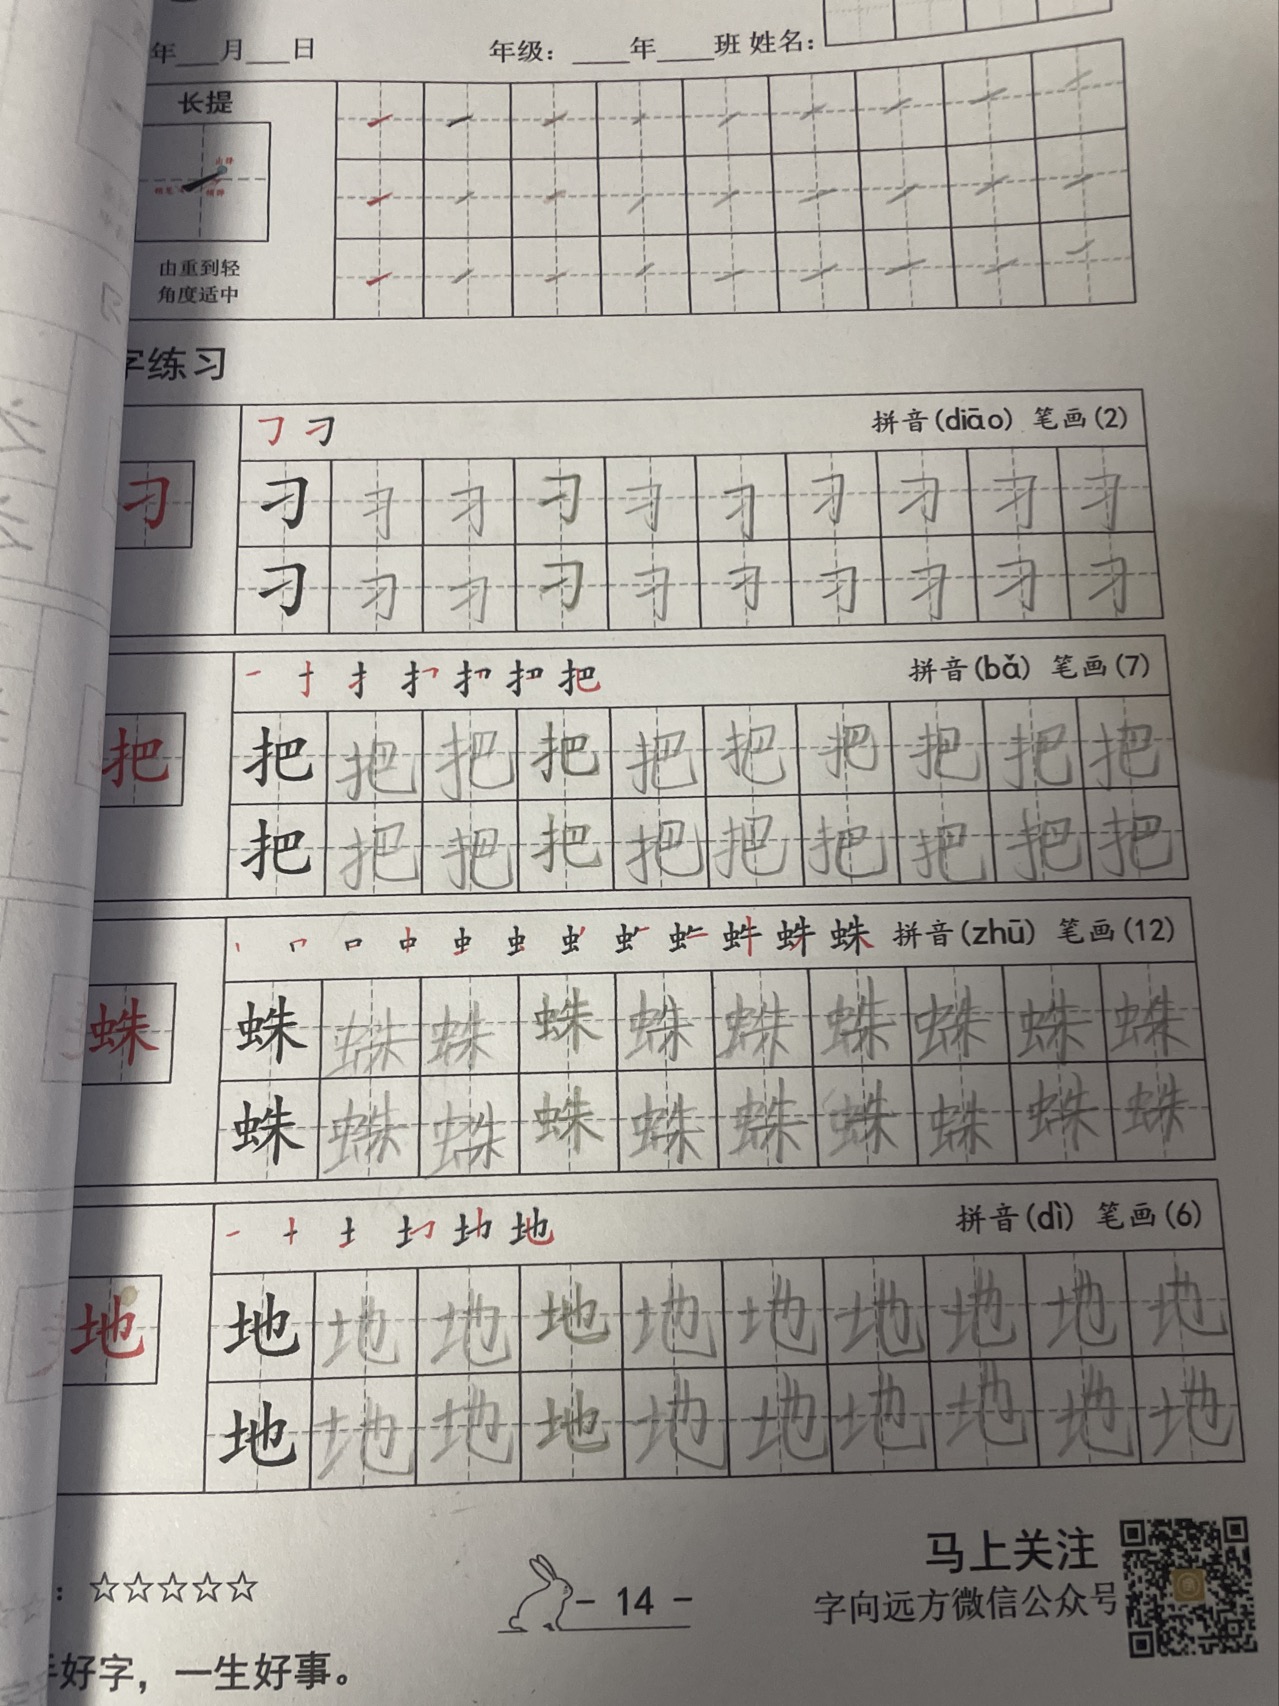 年___月___日 年级：____年____班 姓名：
长提
由重到轻
角度适中
字练习
拼音(diāo) 笔画(2)
刁 刁 刁 刁 刁 刁 刁 刁 刁 刁 刁
刁 刁 刁 刁 刁 刁 刁 刁 刁 刁
拼音(bǎ) 笔画(7)
把 把 把 把 把 把 把 把 把 把 把
把 把 把 把 把 把 把 把 把 把
拼音(zhū) 笔画(12)
蛛 蛛 蛛 蛛 蛛 蛛 蛛 蛛 蛛 蛛 蛛
蛛 蛛 蛛 蛛 蛛 蛛 蛛 蛛 蛛 蛛
拼音(dì) 笔画(6)
地 地 地 地 地 地 地 地 地 地 地
地 地 地 地 地 地 地 地 地 地
：☆☆☆☆☆
- 14 -
马上关注
字向远方微信公众号
手好字，一生好事。